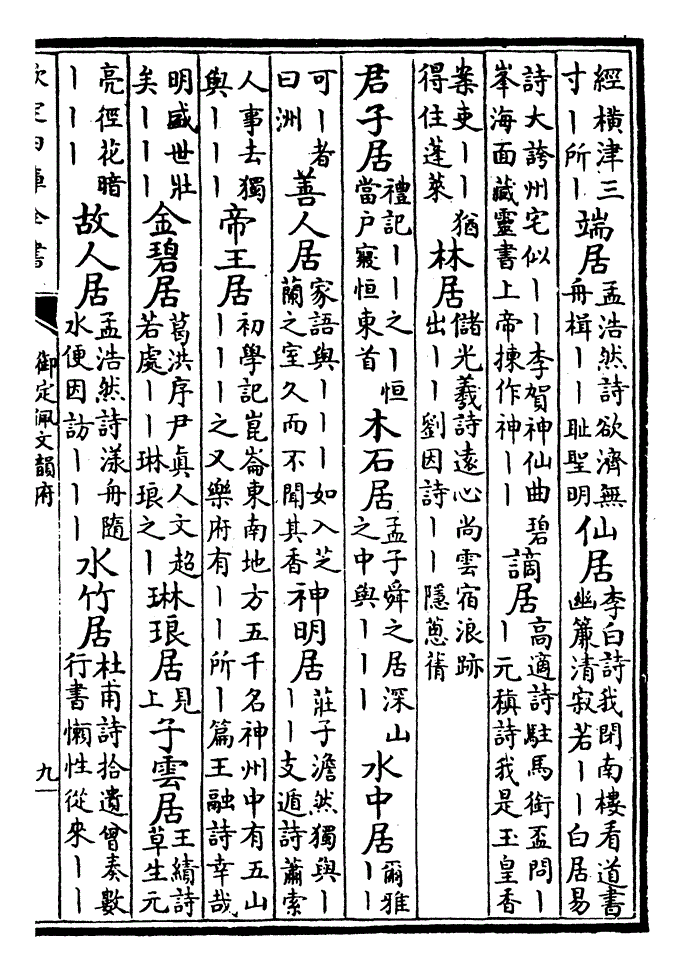 經橫津三寸丨所丨 端居 孟浩然詩欲濟無舟楫丨丨耻聖明 仙居 李白詩我閉南樓看道書幽簾清寂若丨丨白居易
詩大誇州宅似丨丨李賀神仙曲碧峯海面藏靈書上帝揀作神丨丨 謫居 高適詩駐馬銜盃問丨丨元稹詩我是玉皇香
案吏丨丨猶得住蓬萊 林居 儲光羲詩遠心尚雲宿浪跡出丨丨劉因詩丨丨隱蔥蒨
君子居 禮記丨丨之丨恒當户寢恒東首 木石居 孟子舜之居深山之中與丨丨丨 水中居 爾雅丨丨
可丨者曰洲 善人居 家語與丨丨丨如入芝蘭之室久而不聞其香 神明居 莊子澹然獨與丨丨丨支遁詩蕭索
人事去獨與丨丨丨 帝王居 初學記崑崙東南地方五千名神州中有五山丨丨丨之又樂府有丨丨所丨篇王融詩幸哉
明盛世壯矣丨丨丨 金碧居 葛洪序尹真人文超若處丨丨琳琅之丨 琳琅居 見上 子雲居 王績詩草生元
亮徑花暗丨丨丨 故人居 孟浩然詩漾舟隨水便因訪丨丨丨 水竹居 杜甫詩拾遺曾奏數行書懶性從來丨丨
欽定四庫全書 御定佩文韻府 九